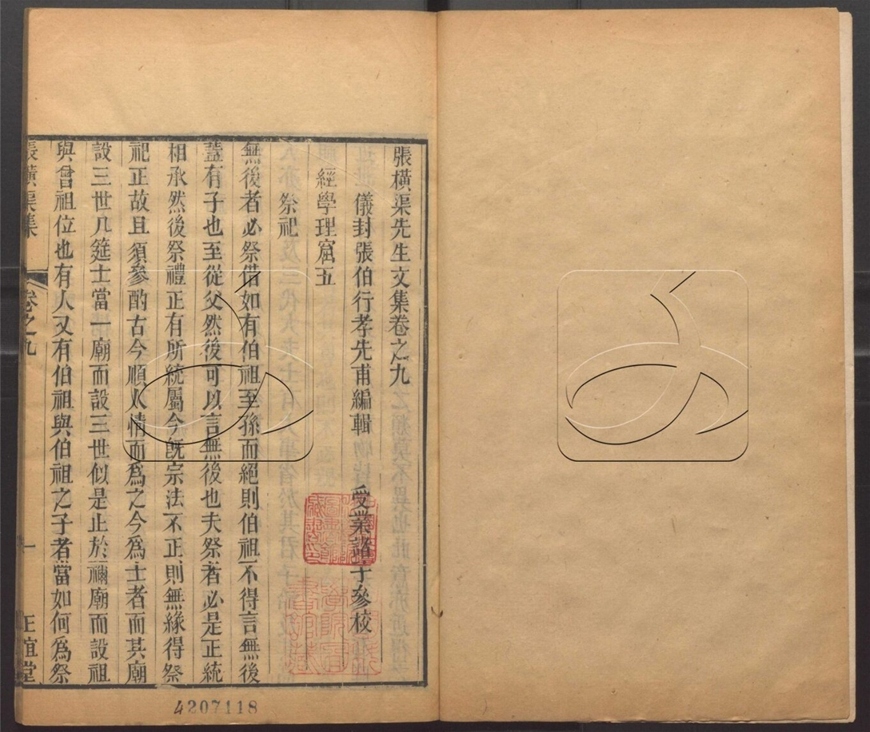 張橫渠先生文集卷之九
儀封張伯行孝先甫編輯 受業諸子參校
經學理窟五
祭祀
無後者必祭借如有伯祖至孫而絕則伯祖不得言無後
蓋有子也至從父然後可以言無後也夫祭者必是正統
相承然後祭禮正有所統屬今旣宗法不正則無緣得祭
祀正故且須參酌古今順人情而爲之今爲士者而其廟
設三世几筵士當一廟而設三世似是止於禰廟而設祖
與曾祖位也有人又有伯祖與伯祖之子者當如何爲祭
張橫渠集 卷之九 一 正誼堂
4207118